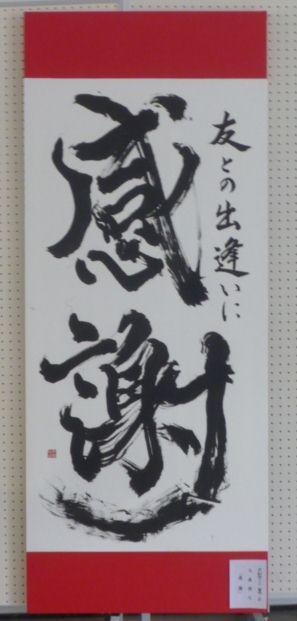 友との出逢いに
感謝